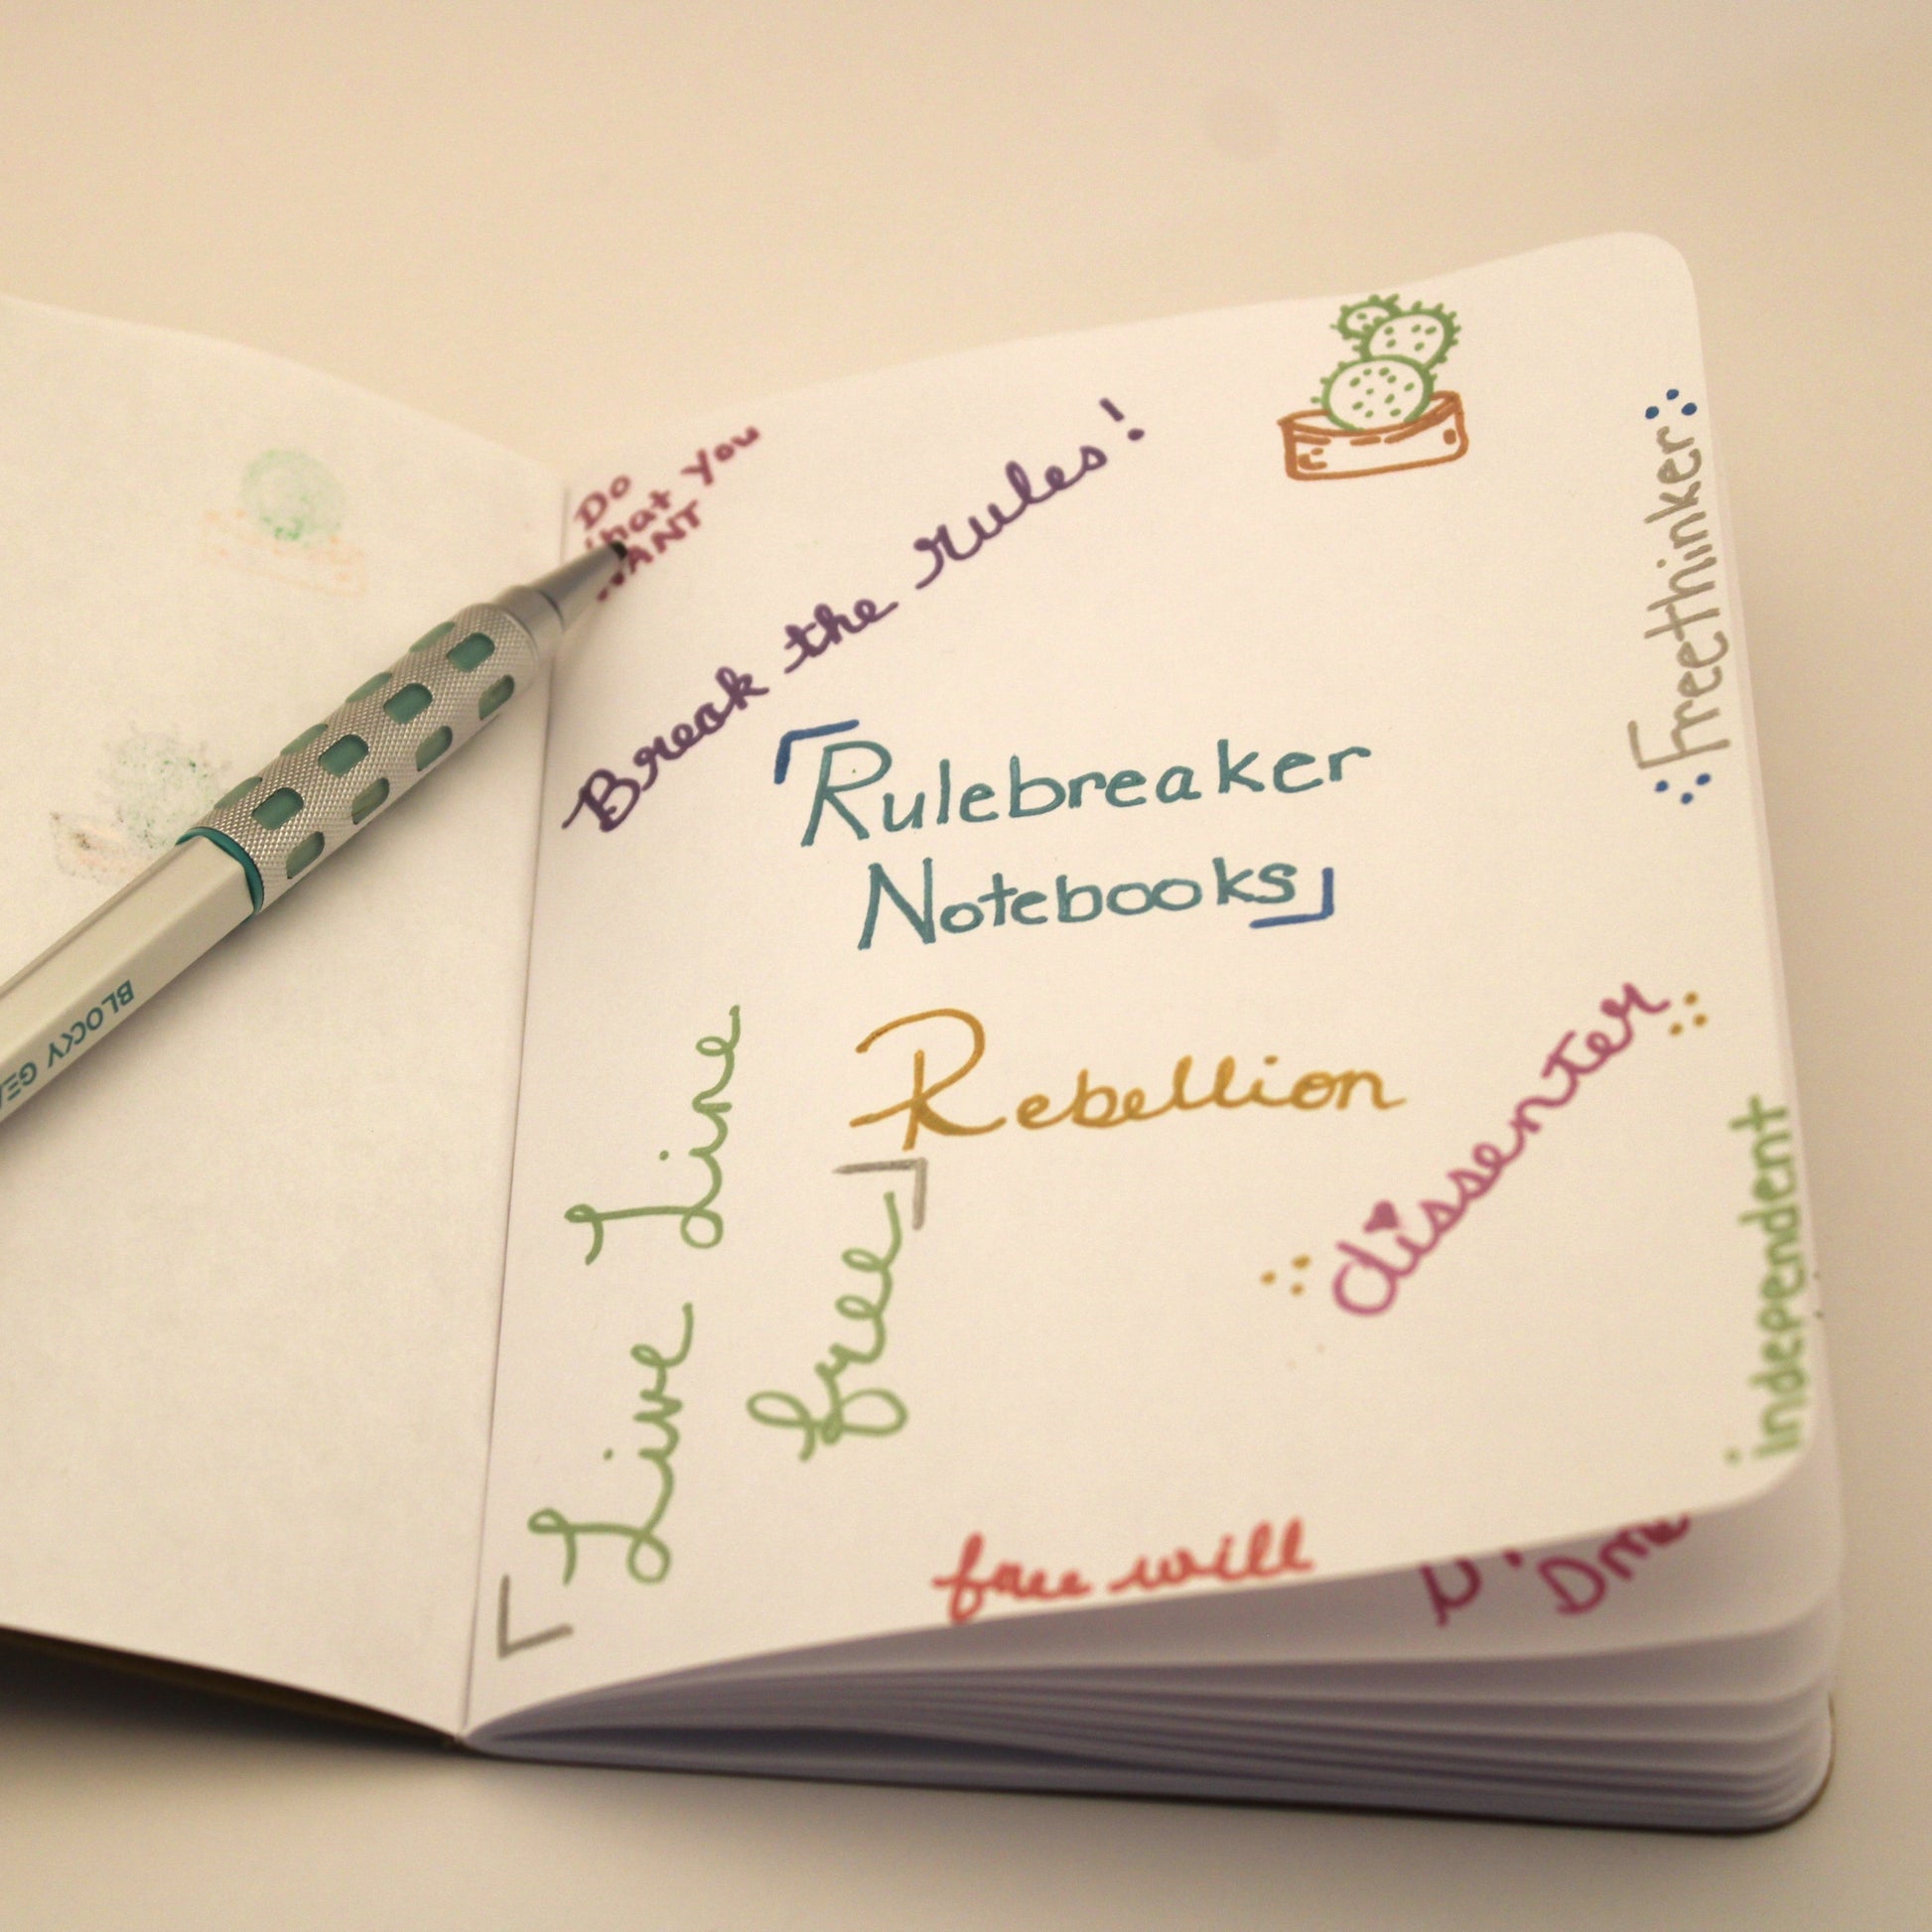 Do
what you
WANT
Break the rules!
Rulebreaker
Notebooks
Freethinker
Rebellion
Live Line
free
dissenter
independent
free will